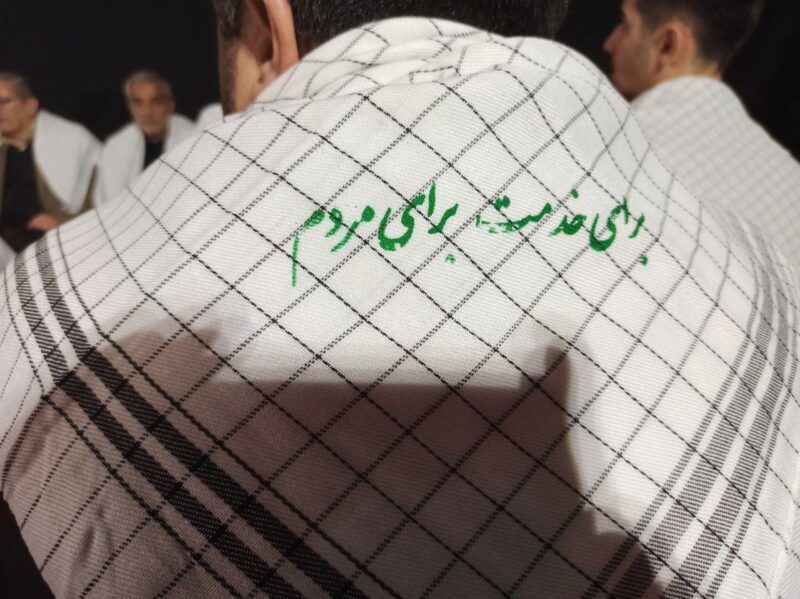 برای خدمت برای مردم